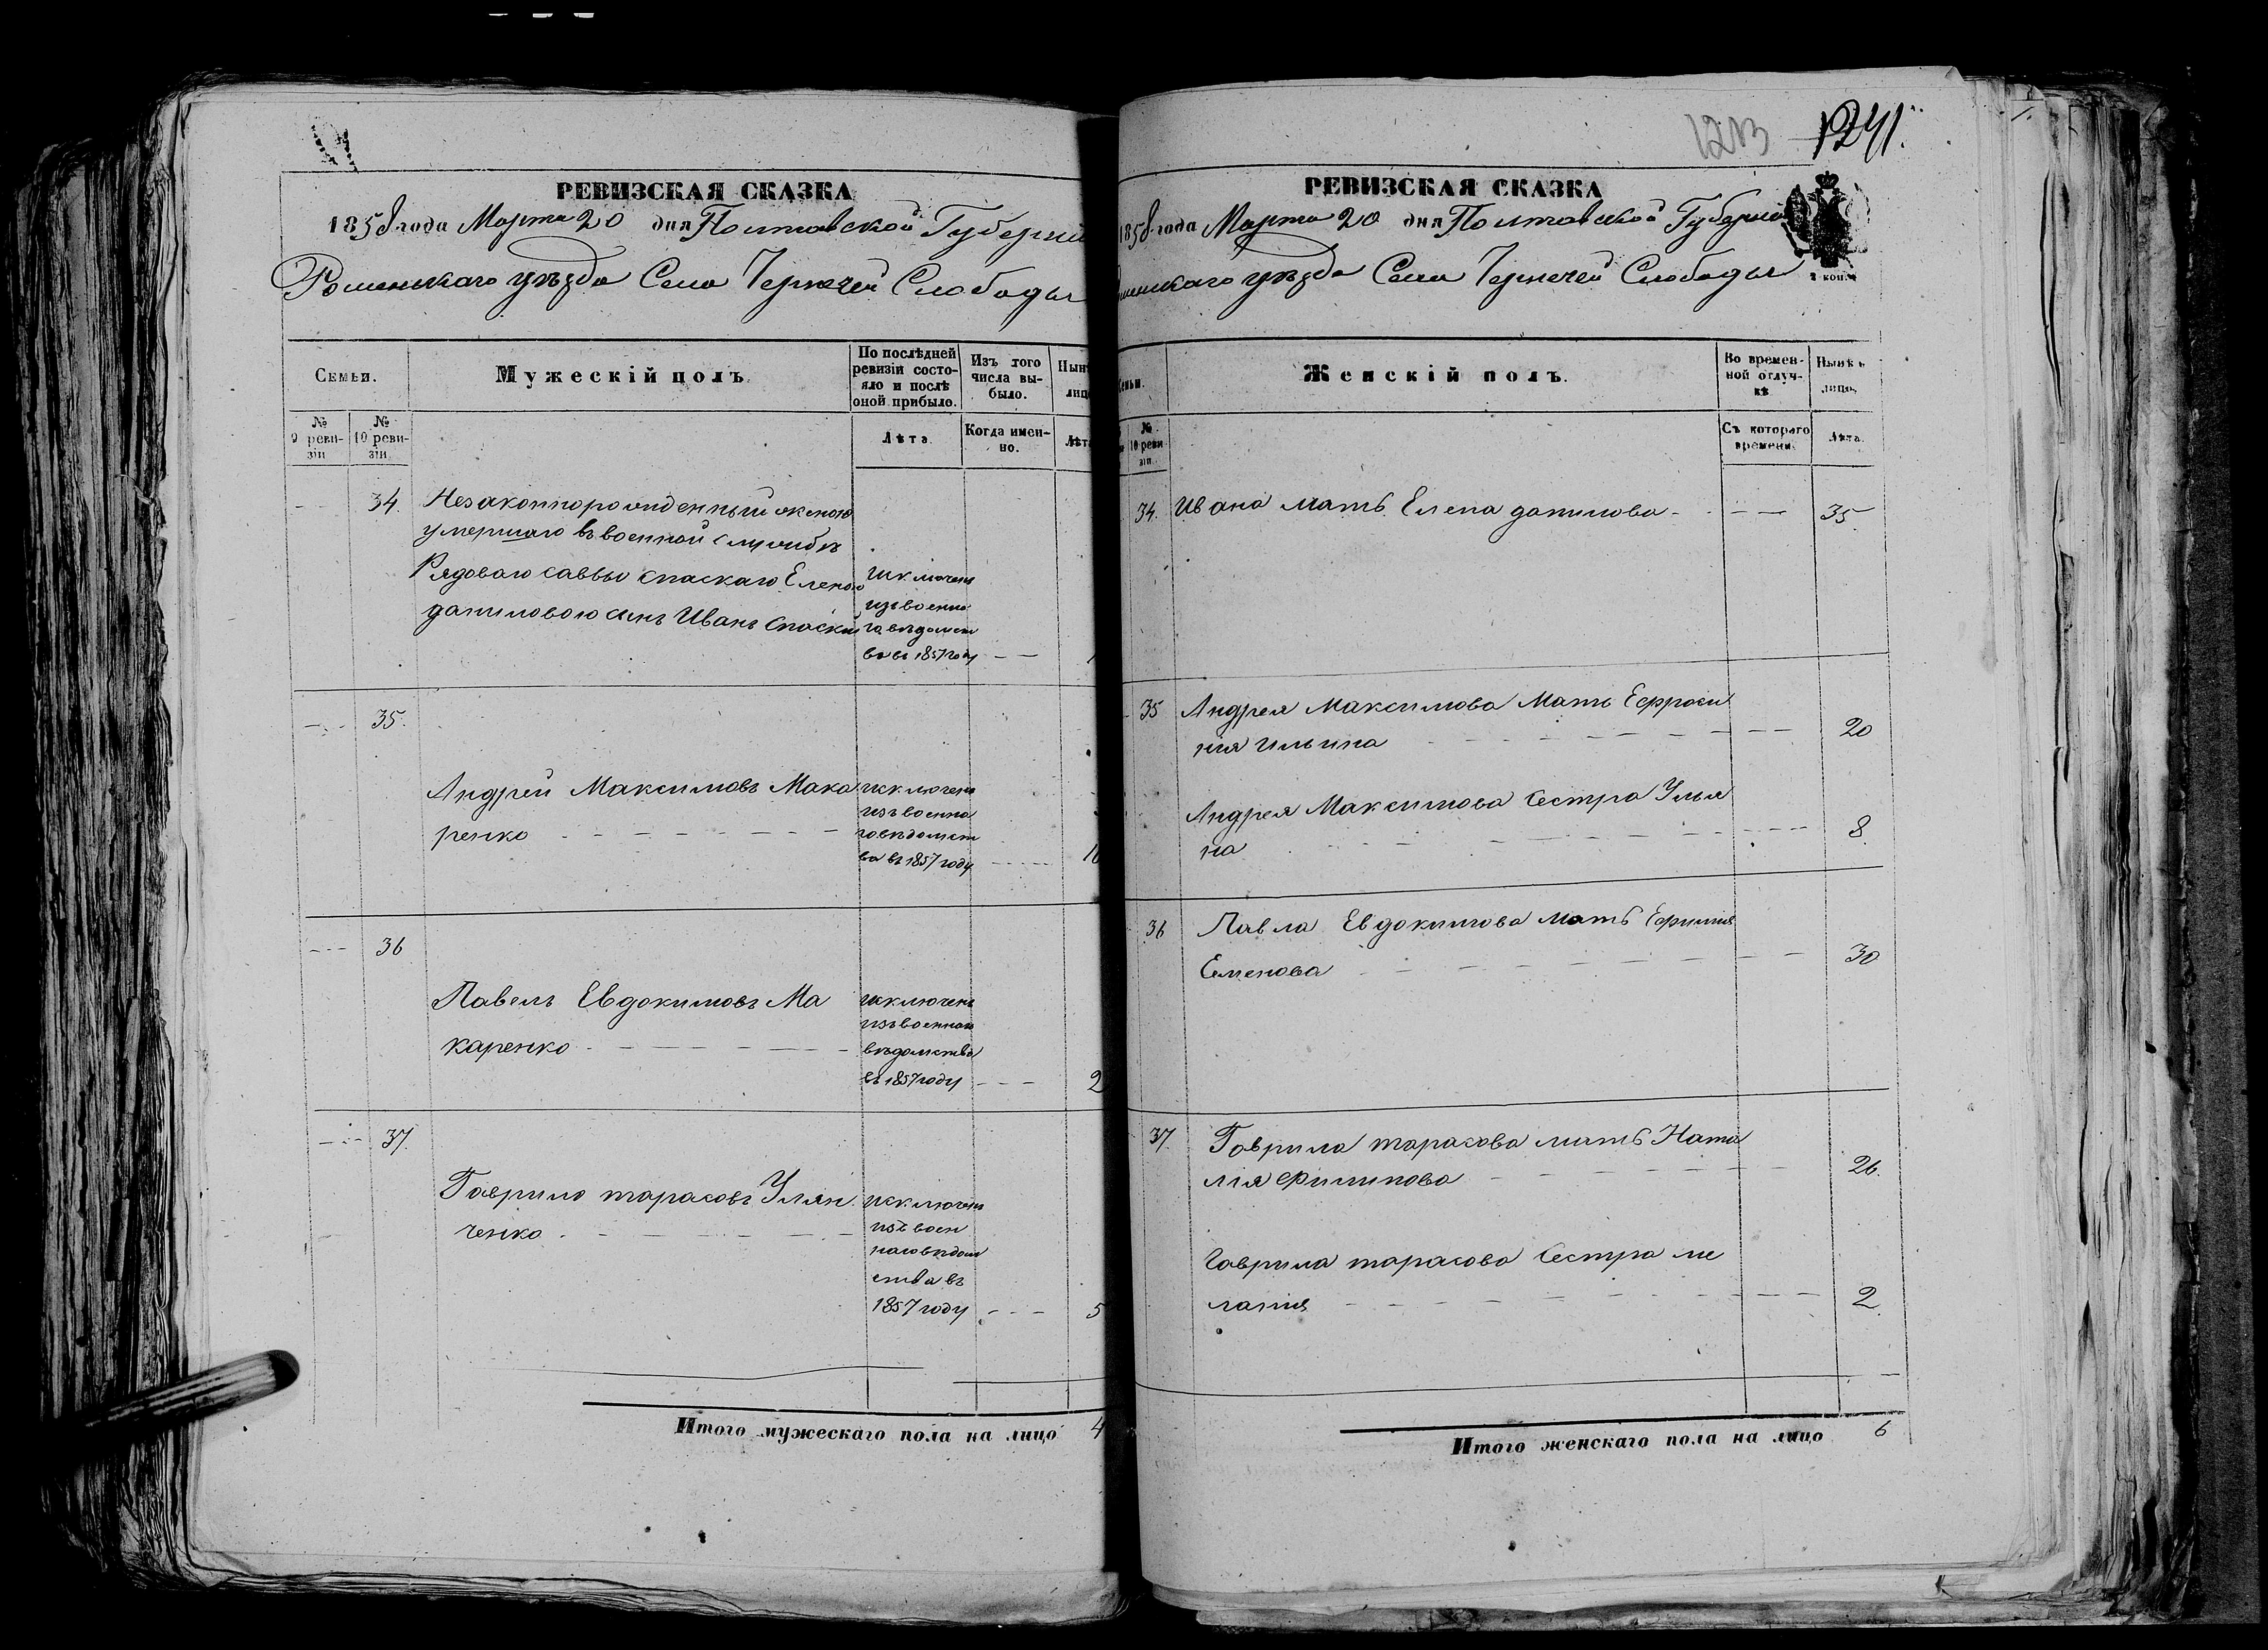 РЕВИЗСКАЯ СКАЗКА
1858 года Марта 20 дня Полтавской Губерніи
Роменскаго уѣзда Села Чернечей Слободы
Семьи.
Мужескій полъ.
По послѣдней ревизіи состояло и послѣ оной прибыло.
Изъ того числа выбыло.
Нынѣ
лицо
№ 9 ревизіи
№ 10 ревизіи.
Лѣта.
Когда именно.
Лѣта
34. Незаконнорожденный женою
умершаго въ военной службѣ
Рядоваго Саввы Спаскаго Еленою
даниловою сынъ Иванъ Спаскій
исключенъ
изъ военна
го вѣдомст
ва въ 1857 году
35.
Андрей Максимовъ Мака
ренко
исключенъ
изъ военна
го вѣдомст
ва въ 1857 году
36
Павелъ Евдокимовъ Ма
каренко
исключенъ
изъ военнаго
вѣдомства
въ 1857 году 2
37.
Гаврило тарасовъ Улян
ченко
исключенъ
изъ воен
наго вѣдом
ства въ
1857 году 5
Итого мужескаго пола на лицо 4
1241.
РЕВИЗСКАЯ СКАЗКА
1858 года Марта 20 дня Полтавской Губерніи
оменскаго уѣзда Села Чернечей Слободы
Семьи.
Женскій полъ.
Во временной отлучкѣ
Нынѣ
лицо.
№ 10 ревизіи.
Съ котораго времени.
Лѣта.
34. Ивана мать Елена данилова 35
35 Андрея Максимова Мать Ефроси
нія ильина 20
Андрея Максимова Сестра Улья
на 8.
36 Павла Евдокимова мать Ефимія
Семенова 30
37. Гаврила тарасова мать Ната
лія Филипова 26.
Гаврила тарасова Сестра ме
ланія 2.
Итого женскаго пола на лицо 6